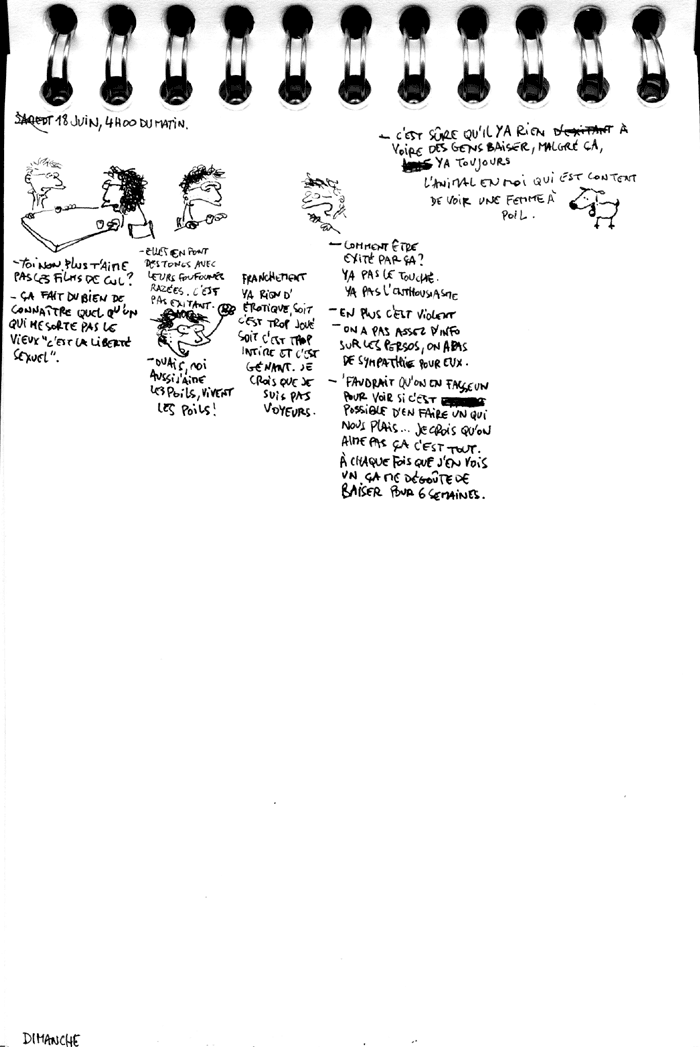 SAMEDI 18 JUIN, 4H00 DU MATIN.
- TOI NON PLUS T'AIME
PAS LES FILMS DE CUL ?
- ÇA FAIT DU BIEN DE
CONNAÎTRE QUELQU'UN
QUI ME SORTE PAS LE
VIEUX "C'EST LA LIBERTÉ
SEXUEL".
- ELLES EN FONT
DES TONGS AVEC
LEURS FOUFOUNES
RAZÉES. C'EST
PAS EXITANT.
- OUAIS, MOI
AUSSI J'AIME
LES POILS, VIVENT
LES POILS !
FRANCHEMENT
YA RIEN D'
ÉROTIQUE, SOIT
C'EST TROP JOUÉ
SOIT C'EST TROP
INTIME ET C'EST
GÉNANT. JE
CROIS QUE JE
SUIS PAS
VOYEURS.
- C'EST SÛRE QU'IL YA RIEN D'EXITANT À
VOIRE DES GENS BAISER, MALGRÉ ÇA,
YA TOUJOURS
L'ANIMAL EN MOI QUI EST CONTENT
DE VOIR UNE FEMME À
POIL.
- COMMENT ÊTRE
EXITÉ PAR ÇA ?
YA PAS LE TOUCHÉ.
YA PAS L'ENTHOUSIASME
- EN PLUS C'EST VIOLENT
- ON A PAS ASSEZ D'INFO
SUR LES PERSOS, ON A PAS
DE SYMPATHIE POUR EUX.
- 'FAUDRAIT QU'ON EN FASSE UN
POUR VOIR SI C'EST
POSSIBLE D'EN FAIRE UN QUI
NOUS PLAIS... JE CROIS QU'ON
AIME PAS ÇA C'EST TOUT.
À CHAQUE FOIS QUE J'EN VOIS
UN ÇA ME DÉGOÛTE DE
BAISER POUR 6 SEMAINES.
DIMANCHE